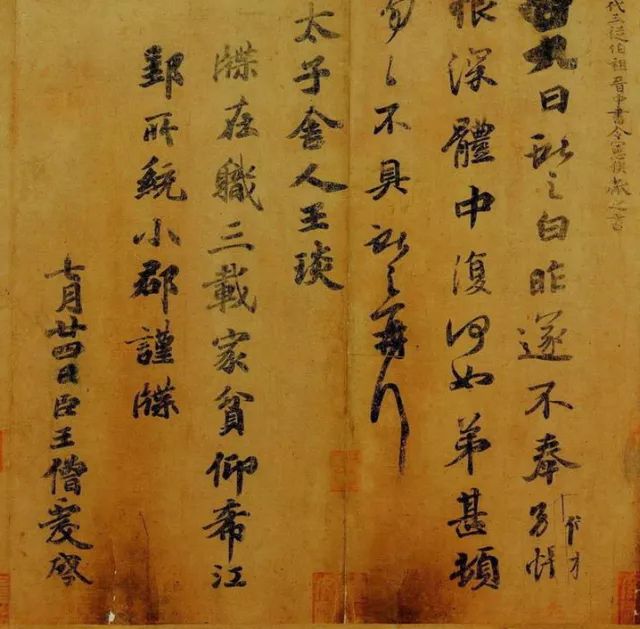 代三從伯祖晉中書令憲侯獻之書
九日獻之白昨遂不奉別悵
恨深體中復何如弟甚頓
勿〻不具獻之再拜
太子舍人王琰
牒在職三載家貧仰希江
郢所統小郡謹牒
七月廿四日臣王僧虔啓